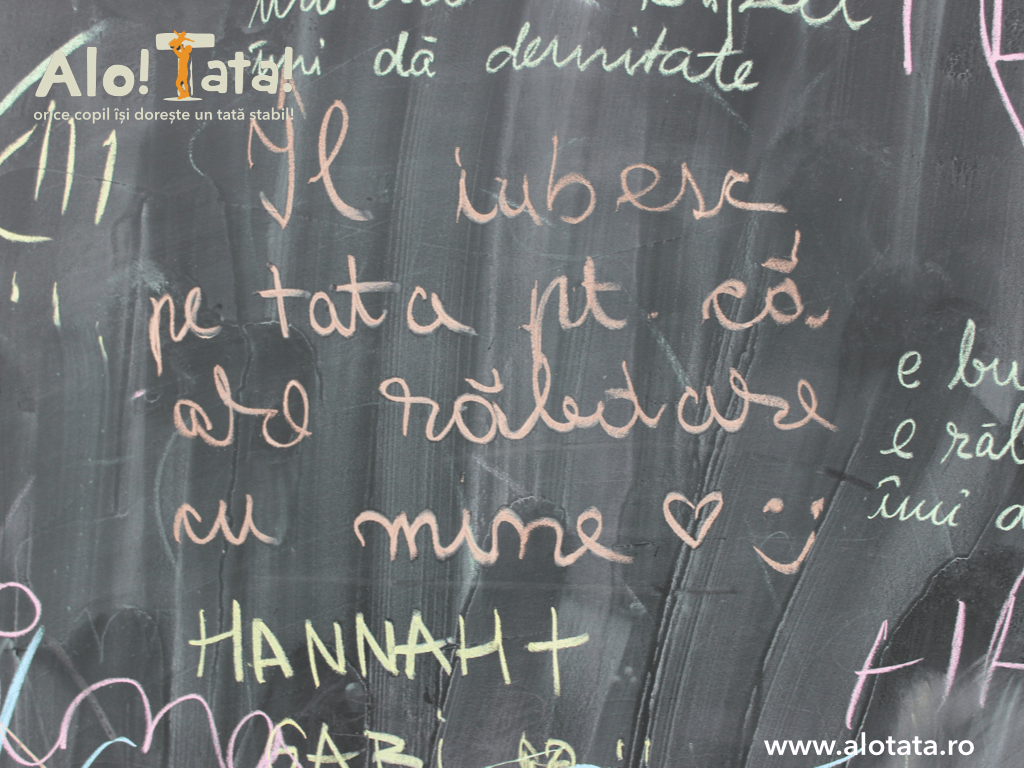 îmi dă demnitate
Alo! Tata!
orice copil își dorește un tată stabil!
Îl iubesc
pe tata pt. că
are răbdare
cu mine ♡ :)
e bu
e răb
îmi d
HANNAH +
GABI
www.alotata.ro